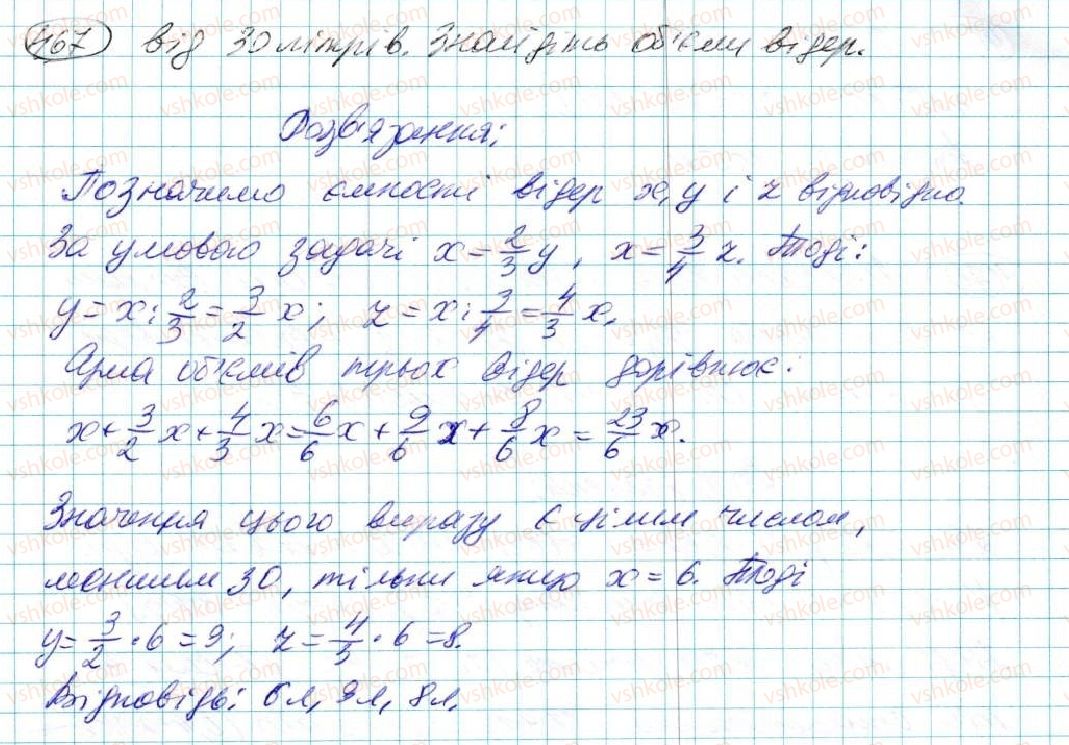 467 від 30 літрів. Знайдіть об'єми відер.
Розв'язання:
Позначимо ємності відер x, y і z відповідно.
За умовою задачі x = 2/3 y, x = 3/4 z. Тоді:
y = x : 2/3 = 3/2 x; z = x : 3/4 = 4/3 x.
Сума об'ємів трьох відер дорівнює:
x + 3/2 x + 4/3 x = 6/6 x + 9/6 x + 8/6 x = 23/6 x.
Значення цього виразу є цілим числом,
меншим 30, тільки якщо x = 6. Тоді
y = 3/2 · 6 = 9; z = 4/3 · 6 = 8.
Відповідь: 6 л, 9 л, 8 л.